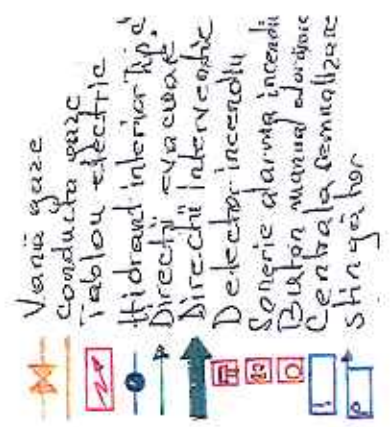 Vană gaze
Conductă gaze
Tablou electric
Hidrant interior Tip.
Direcții evacuare
Direcții intervenție
Detector incendiu
Sonerie alarma incendiu
Buton manual
Centrala semnalizare
Stingător